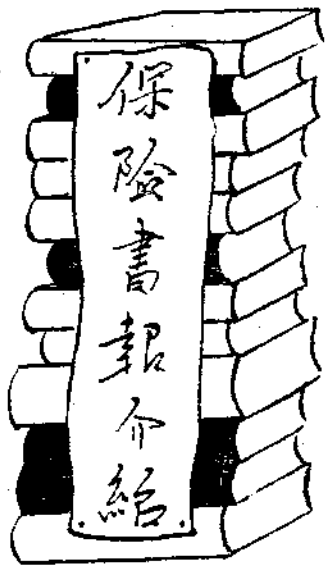 保險書報介紹